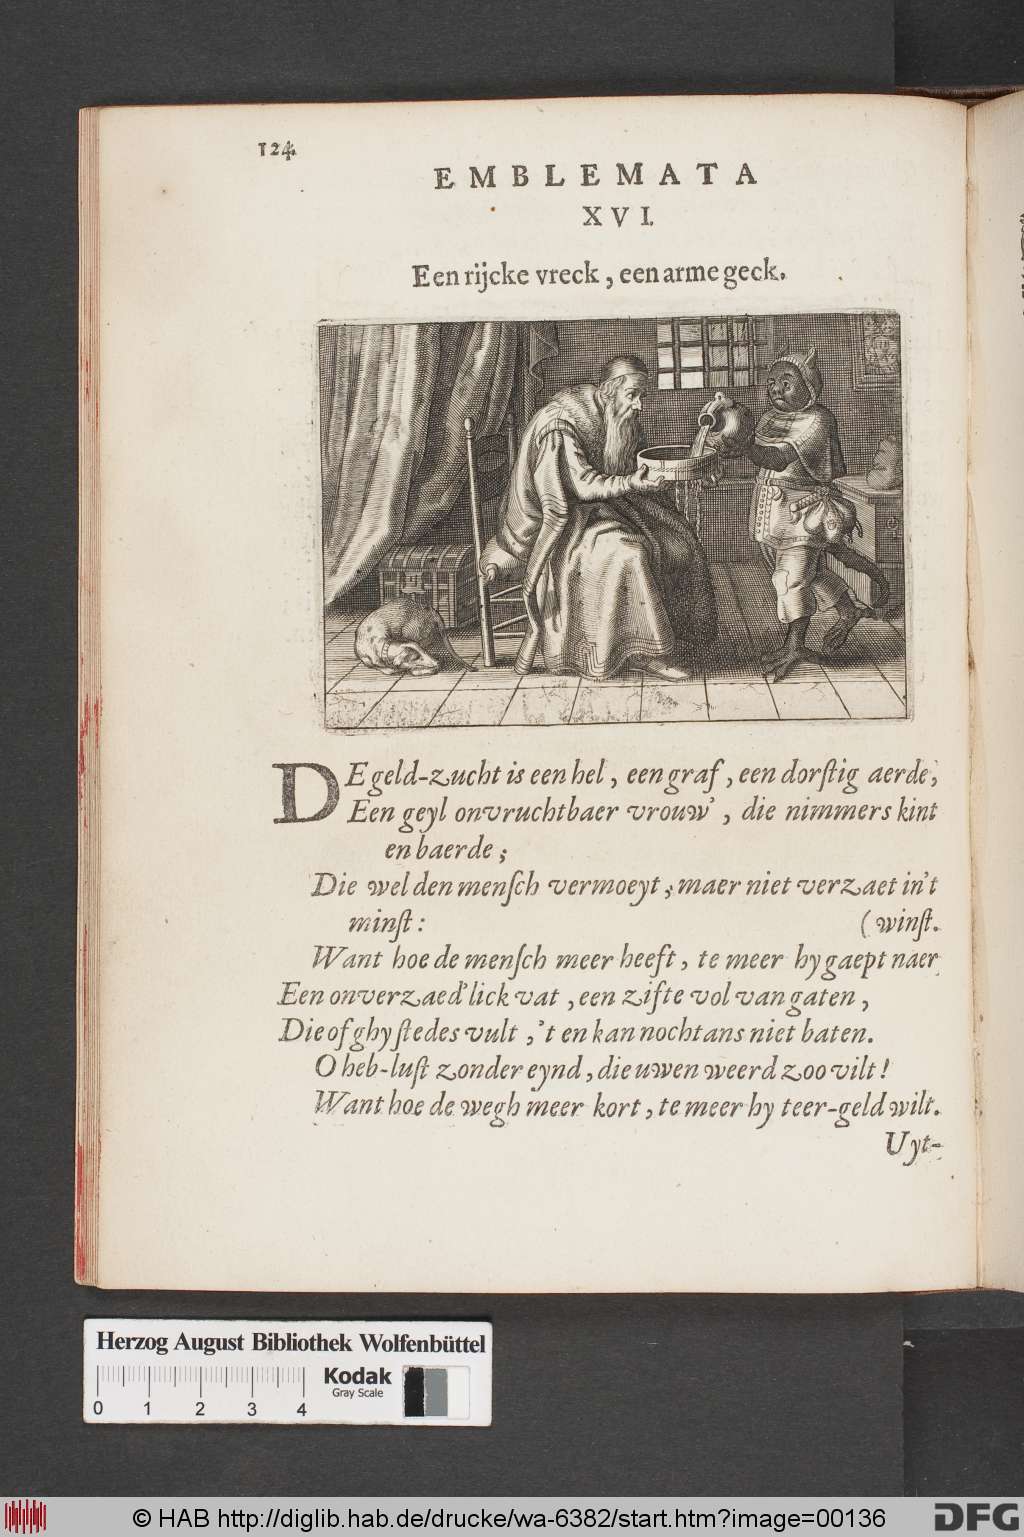 124.
EMBLEMATA
XVI.
Een rijcke vreck, een arme geck.
DE geld-zucht is een hel, een graf, een dorſtig aerde,
Een geyl onvruchtbaer vrouw', die nimmers kint
en baerde;
Die wel den menſch vermoeyt, maer niet verzaet in't
minſt: (winſt.
Want hoe de menſch meer heeft, te meer hy gaept naer
Een onverzaed'lick vat, een zifte vol van gaten,
Die of ghy ſtedes vult, 't en kan nochtans niet baten.
O heb-luſt zonder eynd, die uwen weerd zoo vilt!
Want hoe de wegh meer kort, te meer hy teer-geld wilt.
Uyt-
Herzog August Bibliothek Wolfenbüttel
Kodak
Gray Scale
0 1 2 3 4
© HAB http://diglib.hab.de/drucke/wa-6382/start.htm?image=00136
DFG